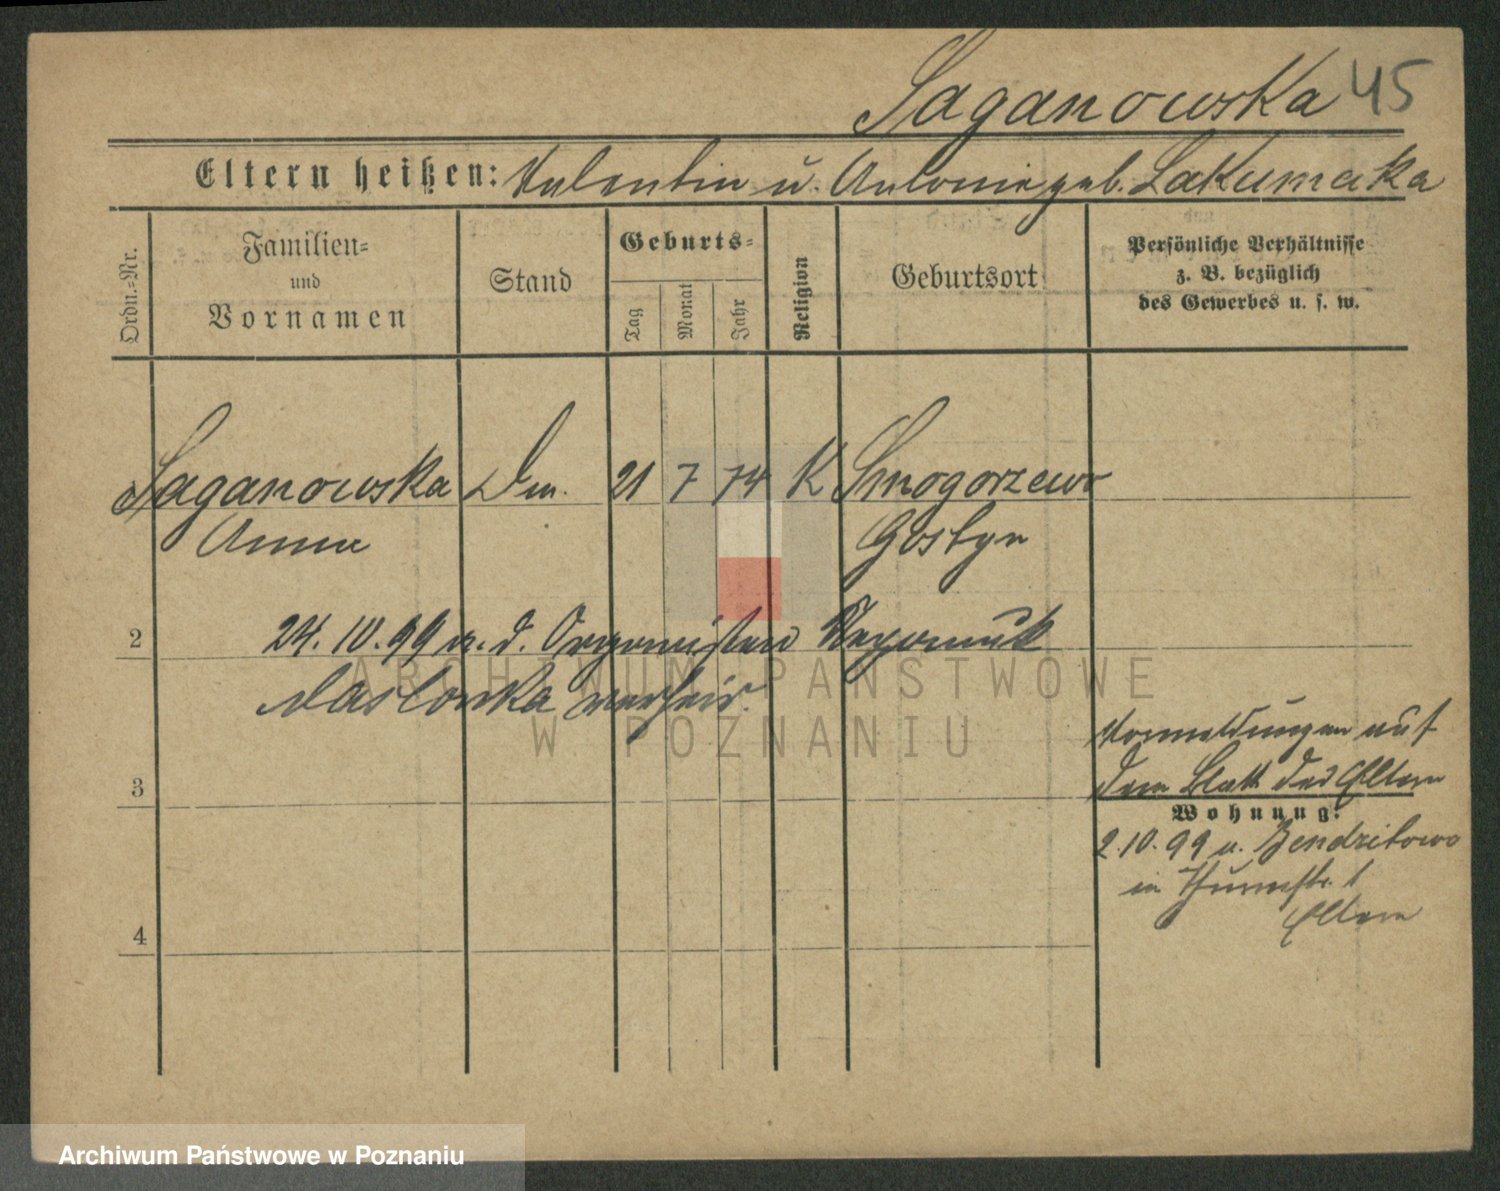 Saganowska 45
Eltern heißen: Valentin u. Antonie geb. Lakumcka
Ordn.-Nr.
Familien- und Vornamen
Stand
Geburts-
Tag
Monat
Jahr
Religion
Geburtsort
Persönliche Verhältnisse
z. B. bezüglich
des Gewerbes u. s. w.
Saganowska
21 7 74 K Smogorzewo
Anna
Gostyn
2
24. 10. 99 m. d. Organisten
verheir.
ARCHIWUM PAŃSTWOWE
W POZNANIU
3
Vormeldungen auf
dem Blatt der Eltern
Wohnung:
2. 10. 99 v. Bendzitowo
in Thurmstr. 1
Eltern
4
Archiwum Państwowe w Poznaniu